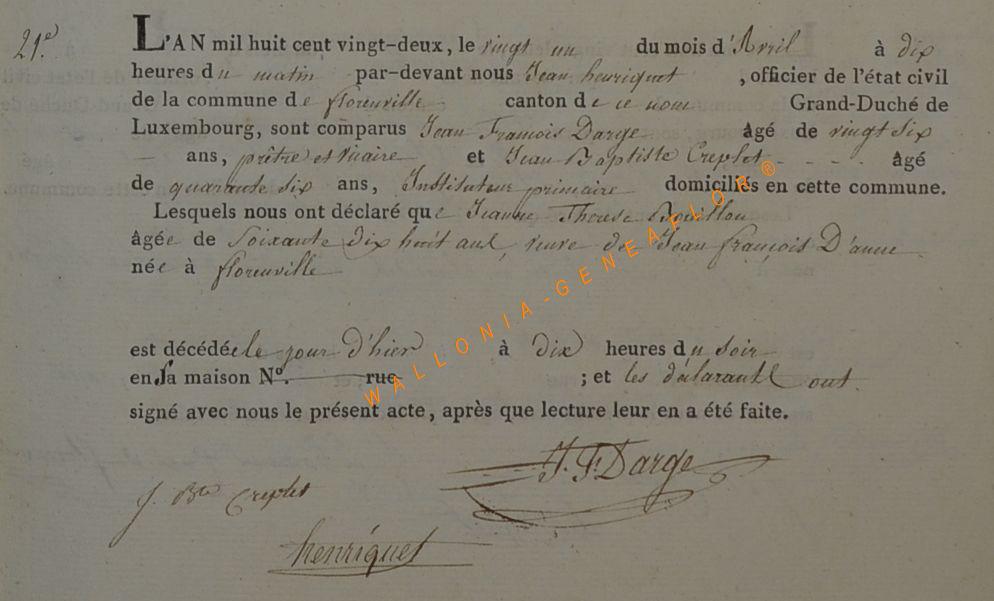 21.e L'AN mil huit cent vingt-deux, le vingt un du mois d'Avril à dix
heures du matin par-devant nous Jean henriquet, officier de l'état civil
de la commune de florenville canton de ce nom Grand-Duché de
Luxembourg, sont comparus Jean François Darge âgé de vingt six
— ans, prêtre et vicaire et Jean Baptiste Creplet - - - - âgé
de quarante six ans, Instituteur primaire domiciliés en cette commune.
Lesquels nous ont déclaré que Jeanne Therese Bouillon
âgée de Soixante dix huit ans, veuve de Jean françois D'anne
née à florenville
est décédée le jour d'hier à dix heures du soir
en Sa maison N.º rue ; et les déclarants ont
signé avec nous le présent acte, après que lecture leur en a été faite.
J. F. Darge
J. Bte Creplet
henriquet
WALLONIA-GENEAFLOR ®